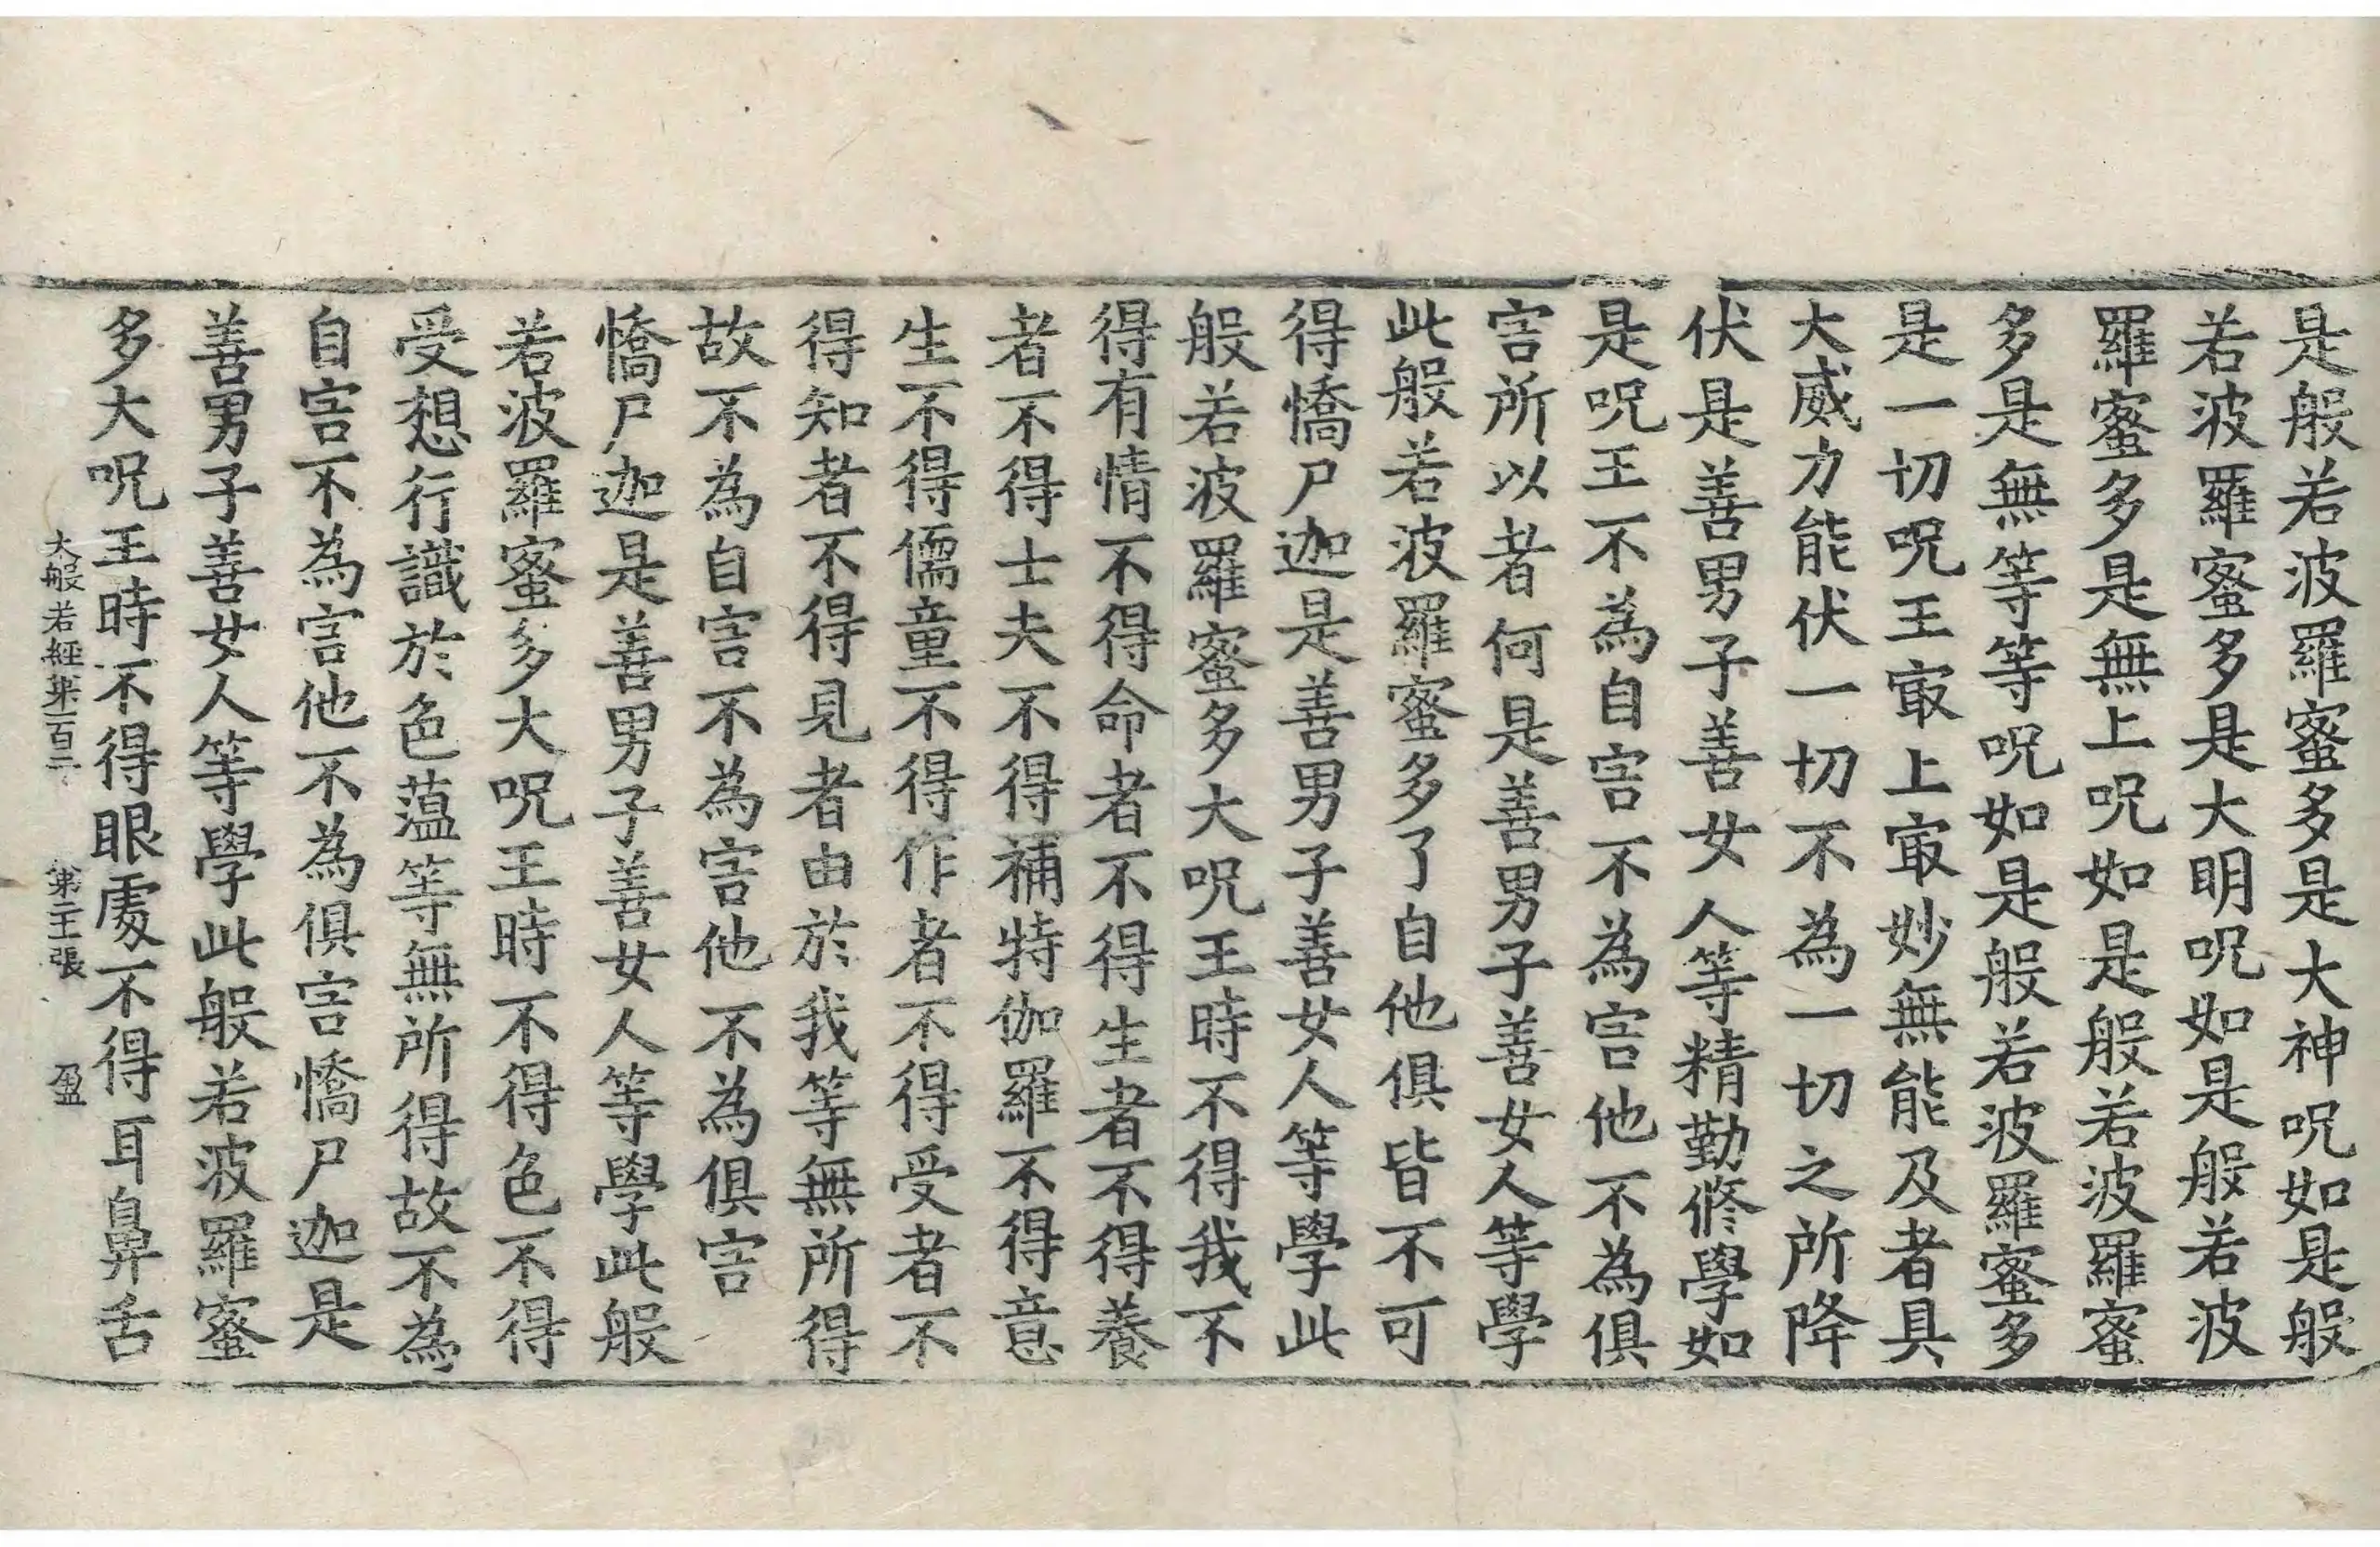 是般若波羅蜜多是大神呪如是般
若波羅蜜多是大明呪如是般若波
羅蜜多是無上呪如是般若波羅蜜
多是無等等呪如是般若波羅蜜多
是一切呪王㝡上㝡妙無能及者具
大威力能伏一切不為一切之所降
伏是善男子善女人等精勤修學如
是呪王不為自害不為害他不為俱
害所以者何是善男子善女人等學
此般若波羅蜜多了自他俱皆不可
得憍尸迦是善男子善女人等學此
般若波羅蜜多大呪王時不得我不
得有情不得命者不得生者不得養
者不得士夫不得補特伽羅不得意
生不得儒童不得作者不得受者不
得知者不得見者由於我等無所得
故不為自害不為害他不為俱害
憍尸迦是善男子善女人等學此般
若波羅蜜多大呪王時不得色不得
受想行識於色蘊等無所得故不為
自害不為害他不為俱害憍尸迦是
善男子善女人等學此般若波羅蜜
多大呪王時不得眼處不得耳鼻舌
大般若經第一百二 第二十三張 盈